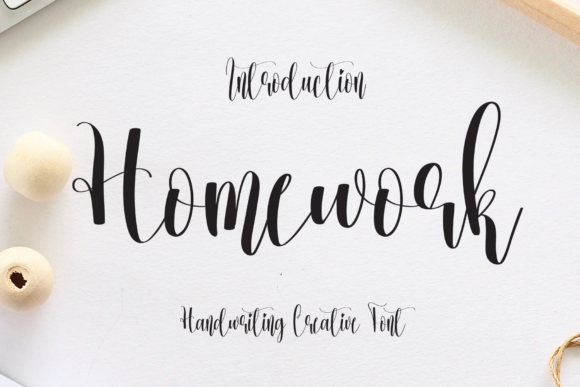 Introduction
Homework
Handwriting Creative Font